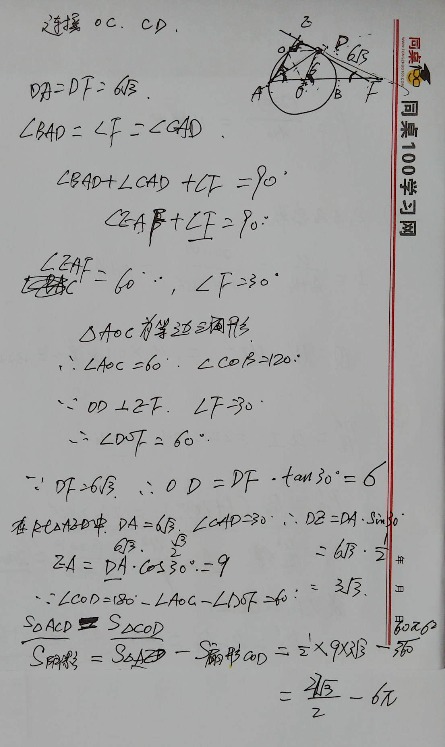 连接 OC. CD.
DA=DF=6√3.
∠BAD=∠F=∠CAD.
∠BAD+∠CAD+∠F=90°
∠EAF+∠F=90°
∠EAF=60°, ∠F=30°
△AOC为等边三角形
∴∠AOC=60° ∠COB=120°
∵OD⊥EF. ∠F=30°
∴∠DOF=60°
∵DF=6√3 ∴OD=DF·tan30°=6
在Rt△AED中. DA=6√3. ∠CAD=30° ∴DE=DA·sin30°
6√3. √3/2 =6√3·1/2
EA=DA·cos30°=9
=3√3.
∵∠COD=180°-∠AOC-∠DOF=60°
S△ACD=S△COD
S阴影=S△AED-S扇形COD=1/2×9×3√3-60π6²/360
=27√3/2-6π
E
D
6√3
C
A
O
B
F
同桌100学习网
年 月 日